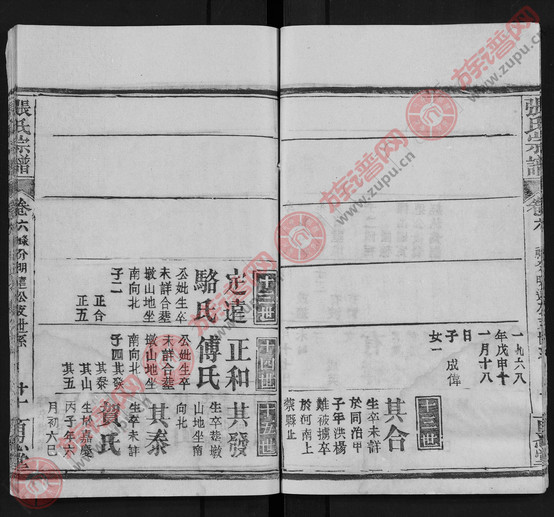 張氏宗譜
卷六
一九六八
年戊申十
一月十八
子 成偉
女一
十三世
其合
生卒未詳
於同治甲
子年洪楊
難被擄卒
於河南上
蔡縣止
十三世
定達
公妣生卒
未詳合塟
墩山地坐
南向北
子二
正合
正五
駱氏
十四世
正和
公妣生卒
未詳合塟
墩山地坐
南向北
子四其發
其泰
其山
其五
傅氏
十五世
其發
生卒塟墩
山地坐南
向北
其泰
生卒未詳
賀氏
生於嘉慶
丙子年六
月初六巳
張氏宗譜
卷六
族谱网
www.zupu.cn
族谱网
www.zupu.cn
族谱网
www.zupu.cn